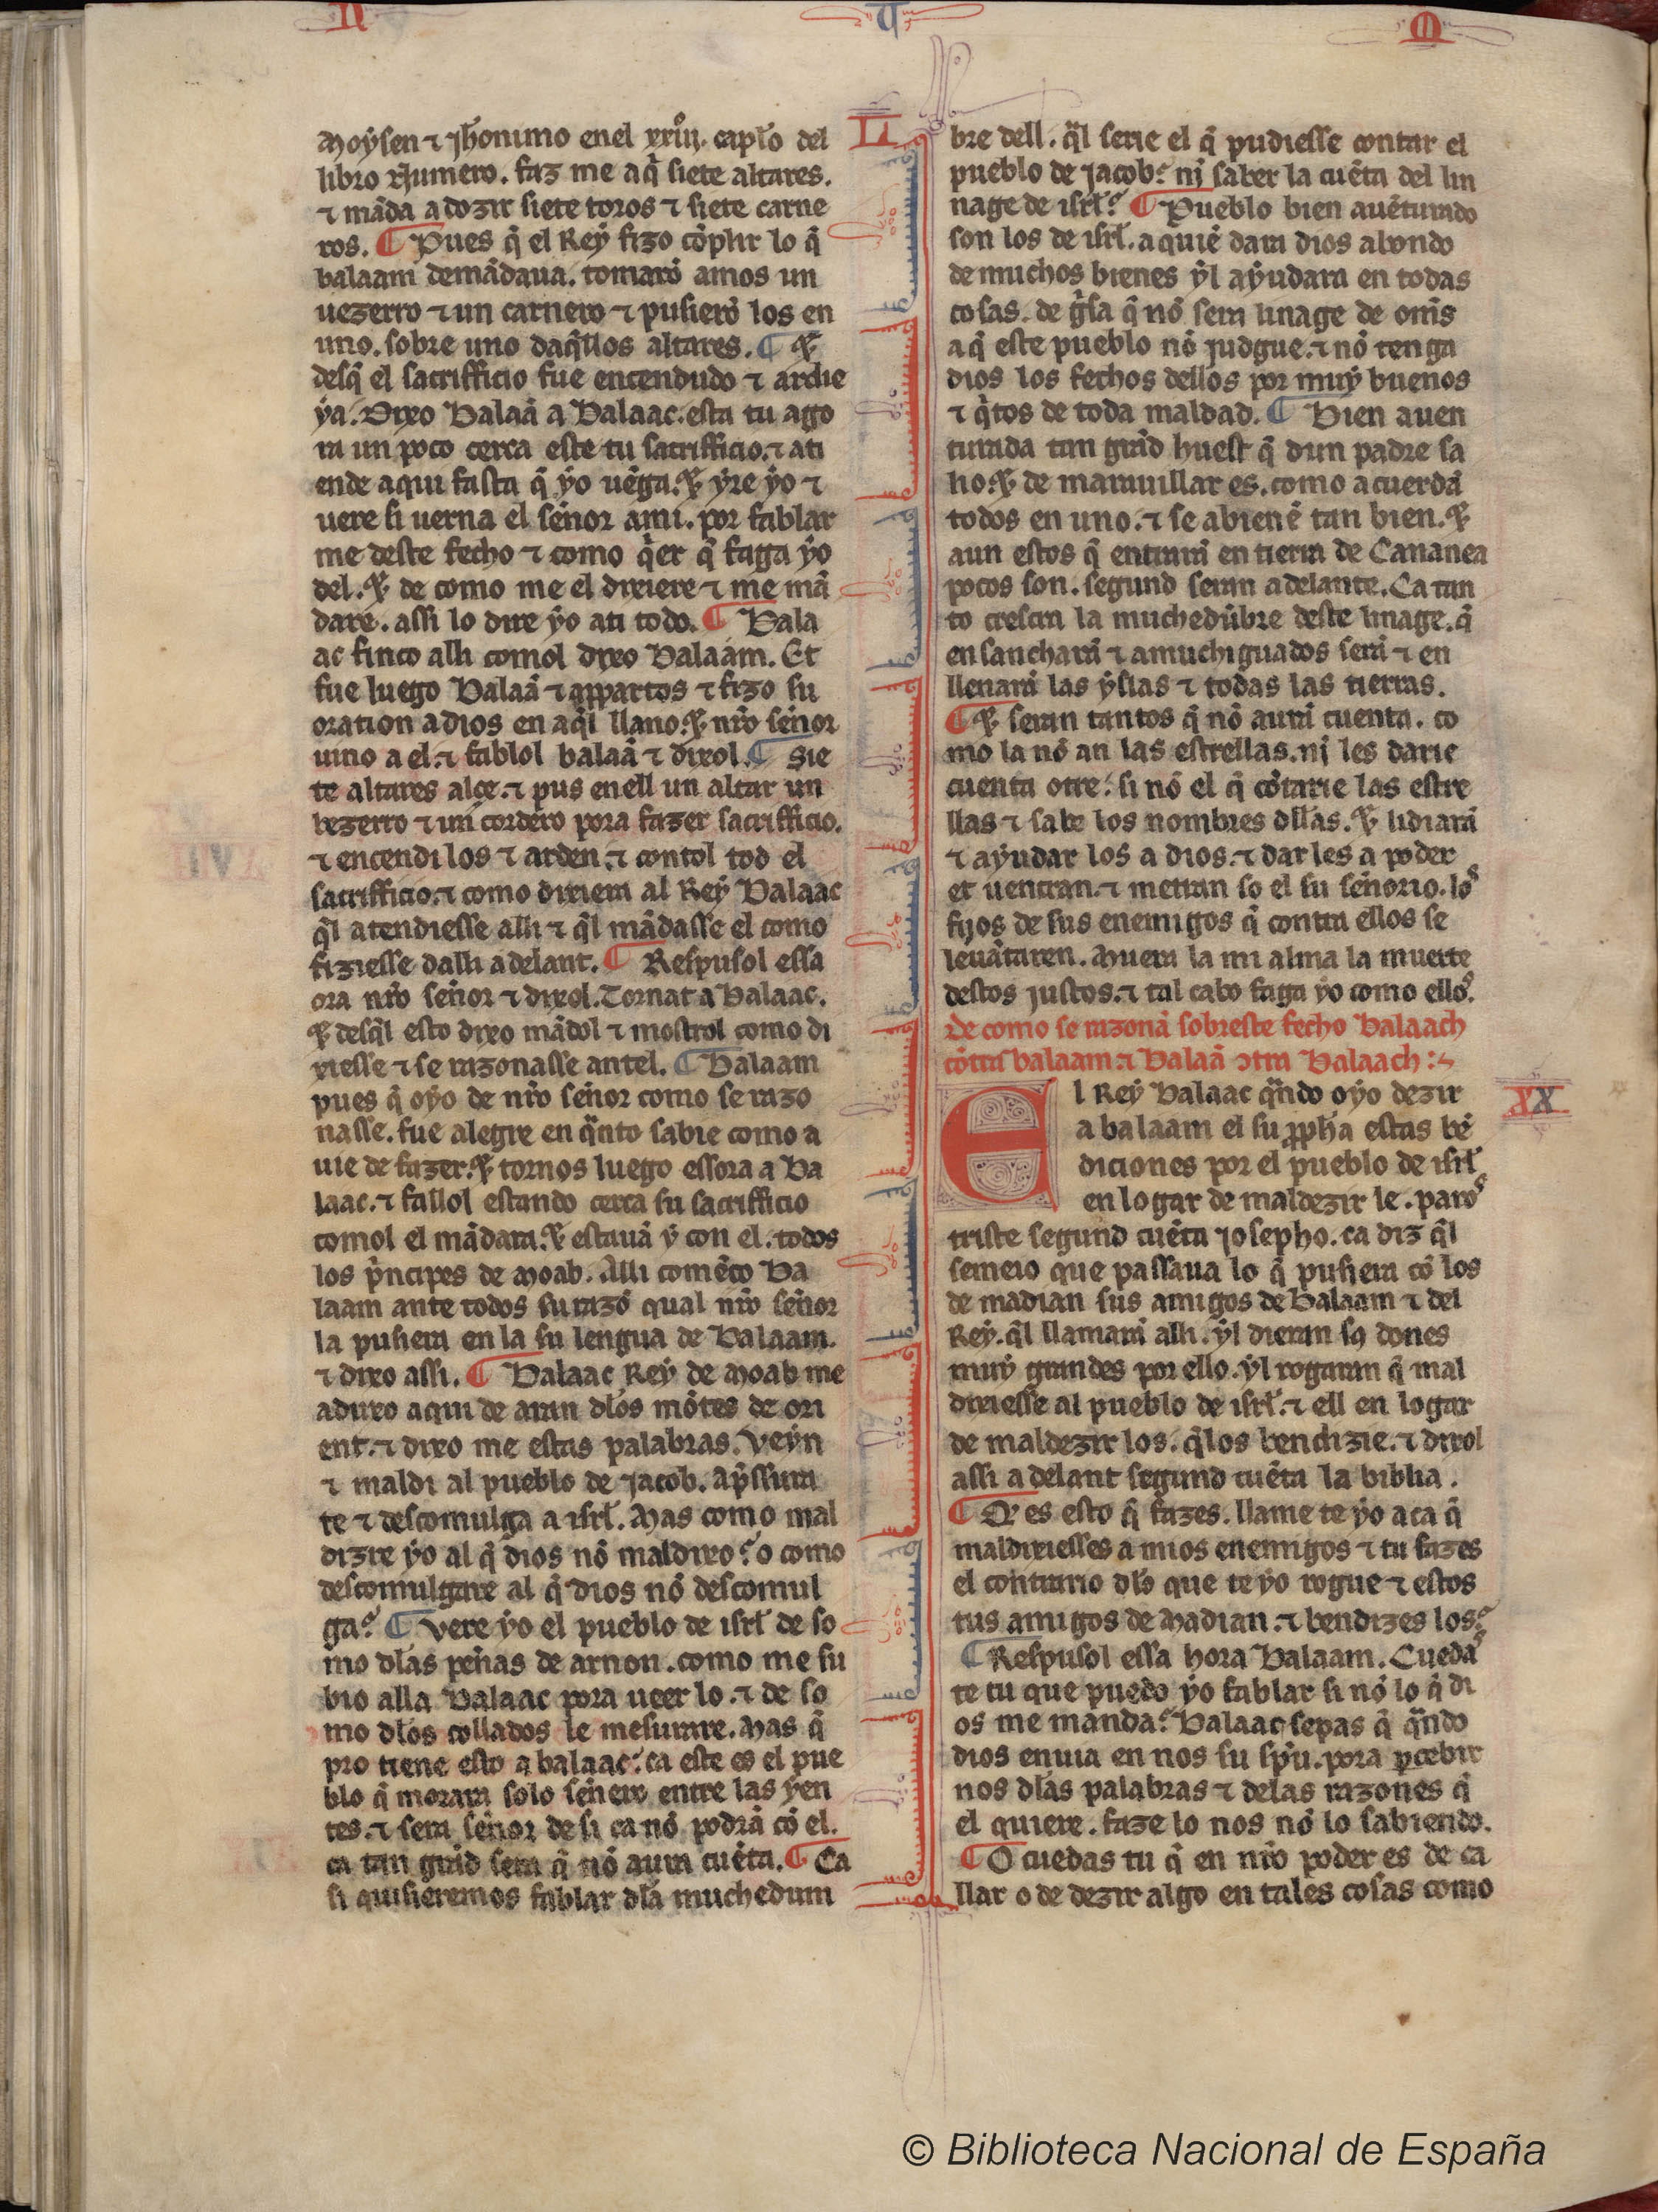 N U M
Moysen ⁊ jheronimo enel xxiij. caplo del
libro Numero. faz me aq̇ siete altares.
⁊ mãda adozir siete toros ⁊ siete carne
ros. ¶ Pues q̃ el Rey fizo cõplir lo q̃
balaam demãdaua. tomarõ amos un
uezerro ⁊ un carnero ⁊ pusierõ los en
uno. sobre uno daq̃llos altares. ¶ ⁊
desq̃ el sacrifficio fue encendudo ⁊ ardie
ya. Dixo Balaã a Balaac. esta tu ago
ra un poco cerca este tu sacrifficio. ⁊ ati
ende aqui fasta q̃ yo uẽga. ⁊ yre yo ⁊
uere si uerna el señor ami. por fablar
me deste fecho ⁊ como q̇er q̃ faga yo
del. ⁊ de como me el dixiere ⁊ me mã
dare. assi lo dire yo ati todo. ¶ Bala
ac finco alli comol dixo Balaam. Et
fue luego Balaã ⁊ appartos ⁊ fizo su
oration a dios en aq̃l llano. ⁊ nr̃o señor
uino a el. ⁊ fablol balaã ⁊ dixol. ¶ Sie
te altares alce. ⁊ pus enell un altar un
bezerro ⁊ un cordero pora fazer sacrifficio.
⁊ encendi los ⁊ arden. ⁊ contol tod el
sacrifficio. ⁊ como dixiera al Rey Balaac
q̃l atendiesse alli ⁊ q̃l mãdasse el como
fiziesse dalli adelant. ¶ Respusol essa
ora nr̃o señor ⁊ dixol. Tornat a Balaac.
⁊ desq̃l esto dixo mãdol ⁊ mostrol como di
xiesse ⁊ se razonasse antel. ¶ Balaam
pues q̃ oyo de nr̃o señor como se razo
nasse. fue alegre en q̃nto sabie como a
uie de fazer. ⁊ tornos luego essora a Ba
laac. ⁊ fallol estando cerca su sacrifficio
comol el mãdara. ⁊ estauã y con el. todos
los p̃ncipes de Moab. Alli comẽço Ba
laam ante todos su razõ qual nr̃o señor
la pusiera en la su lengua de Balaam.
⁊ dixo assi. ¶ Balaac Rey de Moab me
aduxo aqui de aran dlos mõtes de ori
ent. ⁊ dixo me estas palabras. Veyn
⁊ maldi al pueblo de jacob. Ap̃ssura
te ⁊ descomulga a isrl̃. Mas como mal
dizre yo al q̃ dios nõ maldixo? o como
descomulgare al q̃ dios nõ descomul
ga? ¶ Vere yo el pueblo de isrl̃ de so
mo dlas peñas de arnon. como me su
bio alla Balaac pora ueer lo. ⁊ de so
mo dlos collados le mesurare. Mas q̃
pro tiene esto a balaac? ca este es el pue
blo q̃ morara solo señero entre las yen
tes. ⁊ sera señor de si ca nõ podrã cõ el.
ca tan grãd sera q̃ nõ aura cuẽta. ¶ Ca
si quisieremos fablar dla muchedum
bre dell. q̃l serie el q̃ pudiesse contar el
pueblo de jacob? nj saber la cuẽta del lin
nage de isrl̃? ¶ Pueblo bien auẽturado
son los de isrl̃. a quiẽ dara dios abondo
de muchos bienes yl ayudara en todas
cosas. de g̃sa q̃ nõ sera linage de om̃s
aq̃ este pueblo nõ judgue. ⁊ nõ tenga
dios los fechos dellos por muy buenos
⁊ q̇tos de toda maldad. ¶ Bien auen
turada tan grãd huest q̃ dun padre sa
lio. ⁊ de marauillar es. como acuerdã
todos en uno. ⁊ se abienẽ tan bien. ⁊
aun estos q̃ entrarã en tierra de Cananea
pocos son. segund seran adelante. Ca tan
to crescra la muchedũbre deste linage. q̃
ensancharã ⁊ amuchiguados serã ⁊ en
llenarã las yslas ⁊ todas las tierras.
¶ ⁊ seran tantos q̃ nõ aurã cuenta. co
mo la nõ an las estrellas. nj les darie
cuenta otre. si nõ el q̃ cõtarie las estre
llas ⁊ sabe los nombres dllas. ⁊ lidiarã
⁊ ayudar los a dios. ⁊ dar les a poder
et uencran. ⁊ metran so el su señorio. los
fijos de sus enemigos q̃ contra ellos se
leuãtaren. Muera la mi alma la muerte
destos justos. ⁊ tal cabo faga yo como ellos.
De como se razonã sobreste fecho Balaach
cõtra balaam. ⁊ Balaã ↄtra Balaach :~
XX
El Rey Balaac q̃ndo oyo dezir
a balaam el su propha estas bẽ
diciones por el pueblo de isrl̃
en logar de maldezir le. paros
triste segund cuẽta josepho. ca diz q̃l
semeio que passaua lo q̃ pusiera cõ los
de madian sus amigos de Balaam ⁊ del
Rey. q̃l llamarã alli. yl dieran sꝯ dones
muy grandes por ello. yl rogaran q̃ mal
dixiesse al pueblo de isrl̃. ⁊ ell en logar
de maldezir los. q̃los bendizie. ⁊ dixol
assi adelant segund cuẽta la biblia.
¶ Q̃ es esto q̃ fazes. llame te yo aca q̃
maldixiesses a mios enemigos ⁊ tu fazes
el contrario dlo que te yo rogue ⁊ estos
tus amigos de Madian. ⁊ bendizes los?
¶ Respusol essa hora Balaam. Cuedas
te tu que puedo yo fablar si nõ lo q̃ di
os me manda? Balaac sepas q̃ q̃ndo
dios enuia en nos su sp̃u. pora ꝑcebir
nos dlas palabras ⁊ delas razones q̃
el quiere. faze lo nos nõ lo sabiendo.
¶ O cuedas tu q̃ en nr̃o poder es de ca
llar o de dezir algo en tales cosas como
© Biblioteca Nacional de España